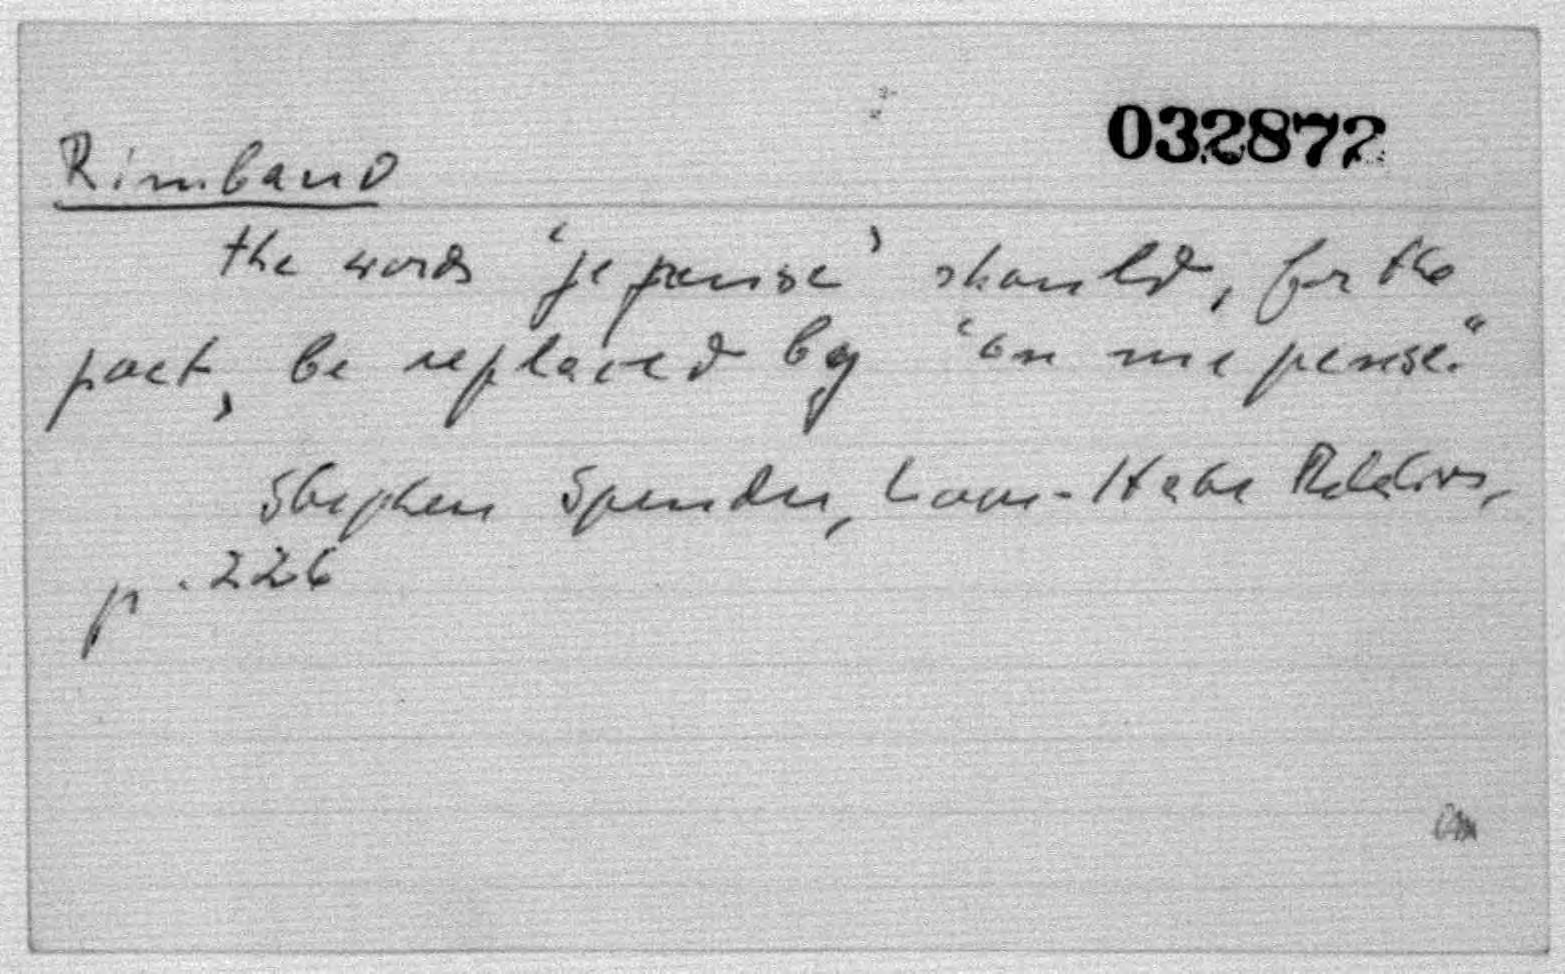 032872
Rimbaud
the words 'je pense' should, for the
poet, be replaced by "on me pense."
Stephen Spender, Love-Hate Relations,
p. 226